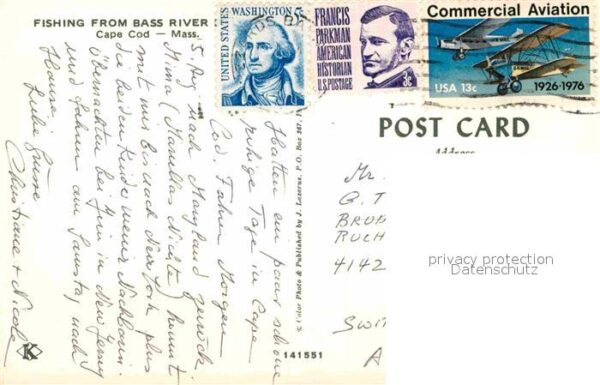 FISHING FROM BASS RIVER
Cape Cod — Mass.
Hatten ein paar schöne
ruhige Tage in Cape
Cod. Fahren Morgen
5. Aug nach Maryland zurück.
Nima (Manellas Nichte) kommt
mit uns bis nach New York plus
die beiden Kinder meiner Nachbarin.
Übernachten bei in New Jersey
und fahren am Samstag nach
Hause.
Liebe Grüsse
Christiane + Nicole
WASHINGTON 5c
UNITED STATES
FRANCIS
PARKMAN
AMERICAN
HISTORIAN
U.S. POSTAGE
3c
Commercial Aviation
USA 13c
1926-1976
POST CARD
Address
Mr.
G. T
BRUD
RUCH
4142
SWIT
A
Color Photo & Published by J. Lazarus, P. O. Box
141551
K
privacy protection
Datenschutz